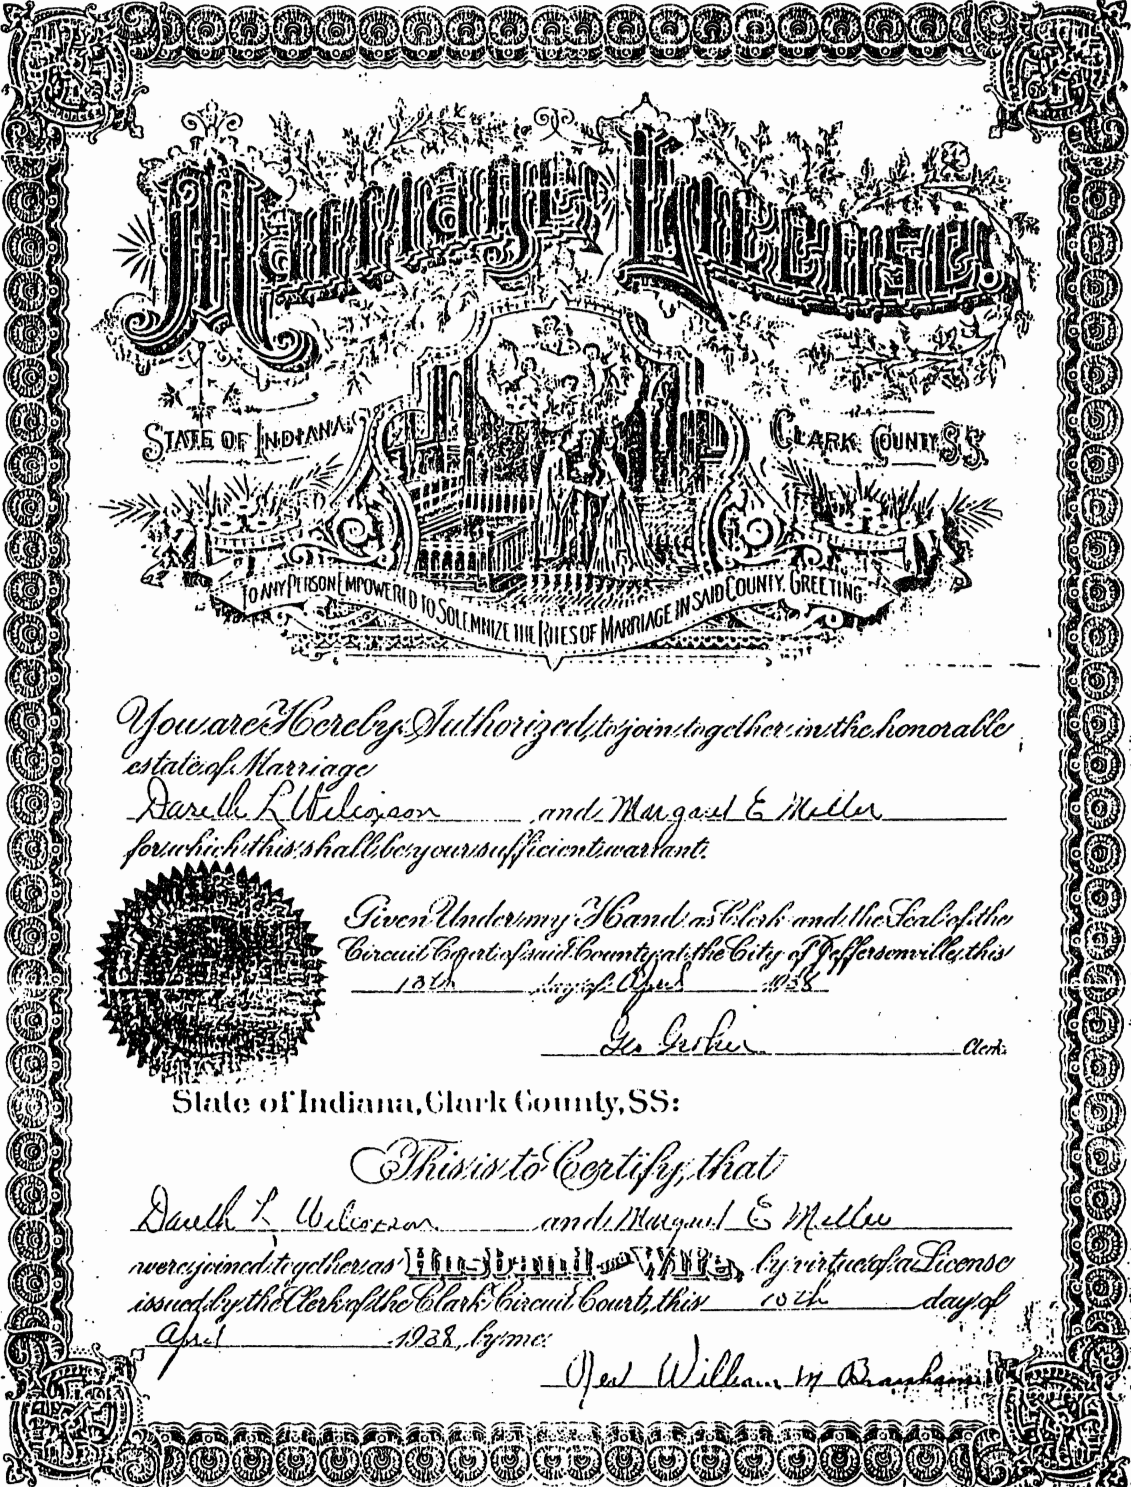 Marriage License.
STATE OF INDIANA,
CLARK COUNTY SS.
TO ANY PERSON EMPOWERED TO SOLEMNIZE THE RITES OF MARRIAGE IN SAID COUNTY, GREETING:
You are Hereby Authorized, to join together in the honorable
estate of Marriage
L Wilcoxson and Margaret E Miller
for which this shall be your sufficient warrant.
Given Under my Hand as Clerk and the Seal of the
Circuit Court of said County at the City of Jeffersonville, this
day of April 1938
Geo Clerk.
State of Indiana, Clark County, SS:
This is to Certify, that
L and Margaret E Miller
were joined together as Husband and Wife, by virtue of a License
issued by the Clerk of the Clark Circuit Court, this day of
April 1938, by me:
Rev William M Branham